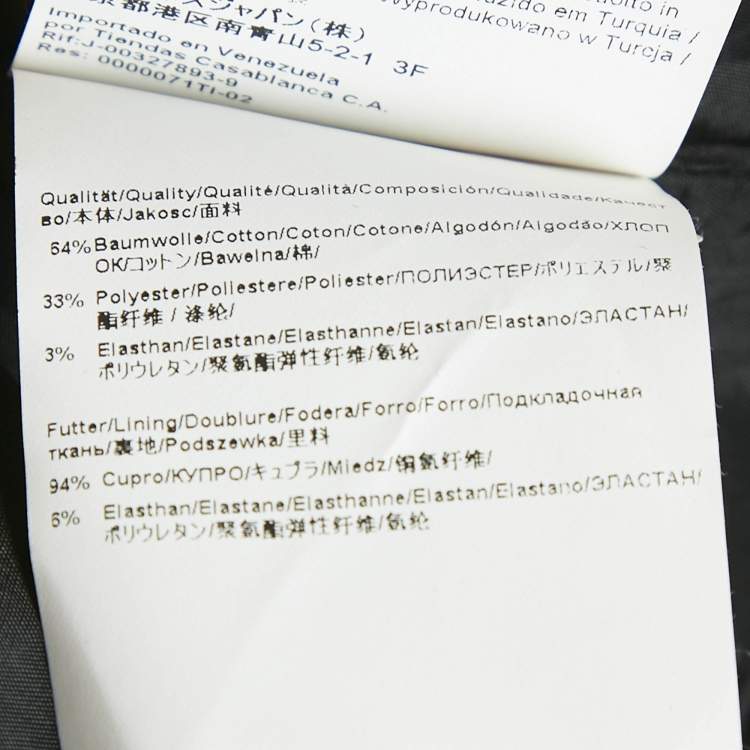 odotto in
duzido em Turquia /
Wyprodukowano w Turcja /
スジャパン(株)
京都港区南青山5-2-1 3F
Importado en Venezuela
por Tiendas Casablanca C.A.
Rif:J-00327893-9
Res: 0000071TI-02
Qualität/Quality/Qualité/Qualità/Composición/Qualidade/Качест
во/本体/Jakosc/面料
64% Baumwolle/Cotton/Coton/Cotone/Algodón/Algodão/ХЛОП
ОК/コットン/Bawelna/棉/
33% Polyester/Poliestere/Poliester/ПОЛИЭСТЕР/ポリエステル/聚
酯纤维 / 涤纶/
3% Elasthan/Elastane/Elasthanne/Elastan/Elastano/ЭЛАСТАН/
ポリウレタン/聚氨酯弹性纤维/氨纶
Futter/Lining/Doublure/Fodera/Forro/Forro/Подкладочная
ткань/裏地/Podszewka/里料
94% Cupro/КУПРО/キュプラ/Miedz/铜氨纤维/
6% Elasthan/Elastane/Elasthanne/Elastan/Elastano/ЭЛАСТАН/
ポリウレタン/聚氨酯弹性纤维/氨纶